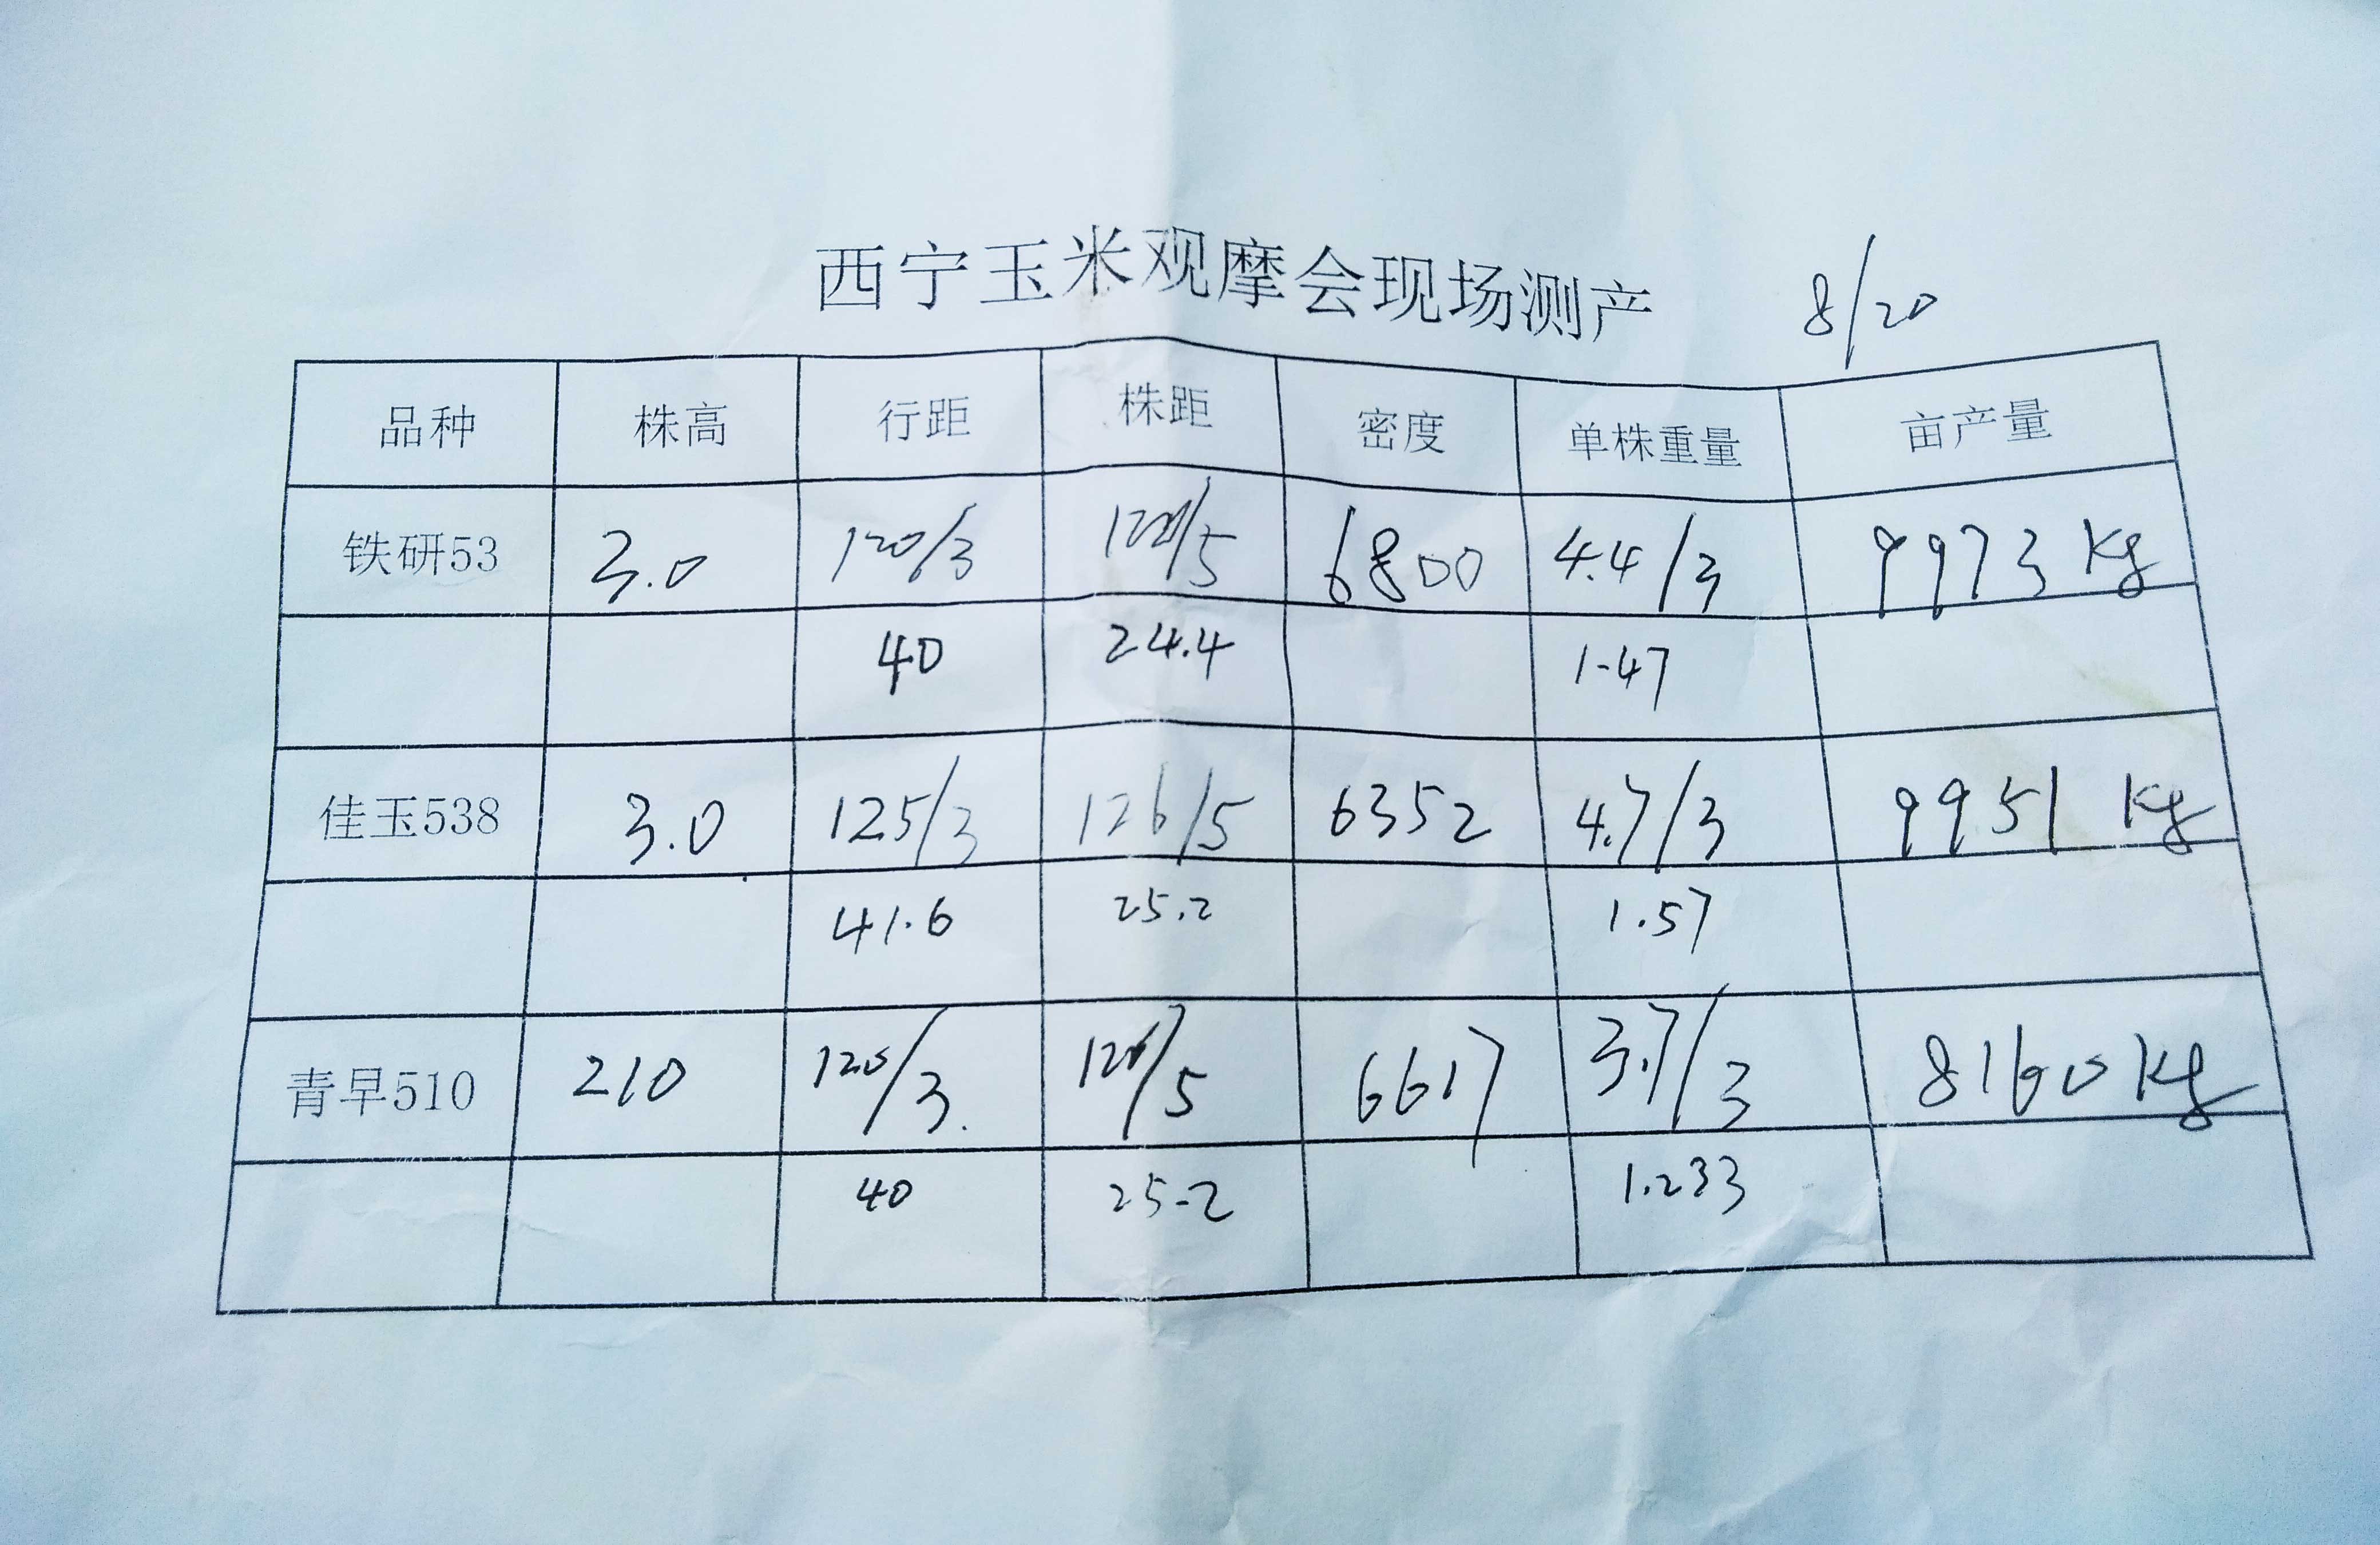 西宁玉米观摩会现场测产 8/20
品种 株高 行距 株距 密度 单株重量 亩产量
铁研53 3.0 120/3 122/5 6800 4.4/3 9973 kg
40 24.4 1.47
佳玉538 3.0 125/3 126/5 6352 4.7/3 9951 kg
41.6 25.2 1.57
青早510 210 120/3. 126/5 6617 3.7/3 8160 kg
40 25.2 1.233